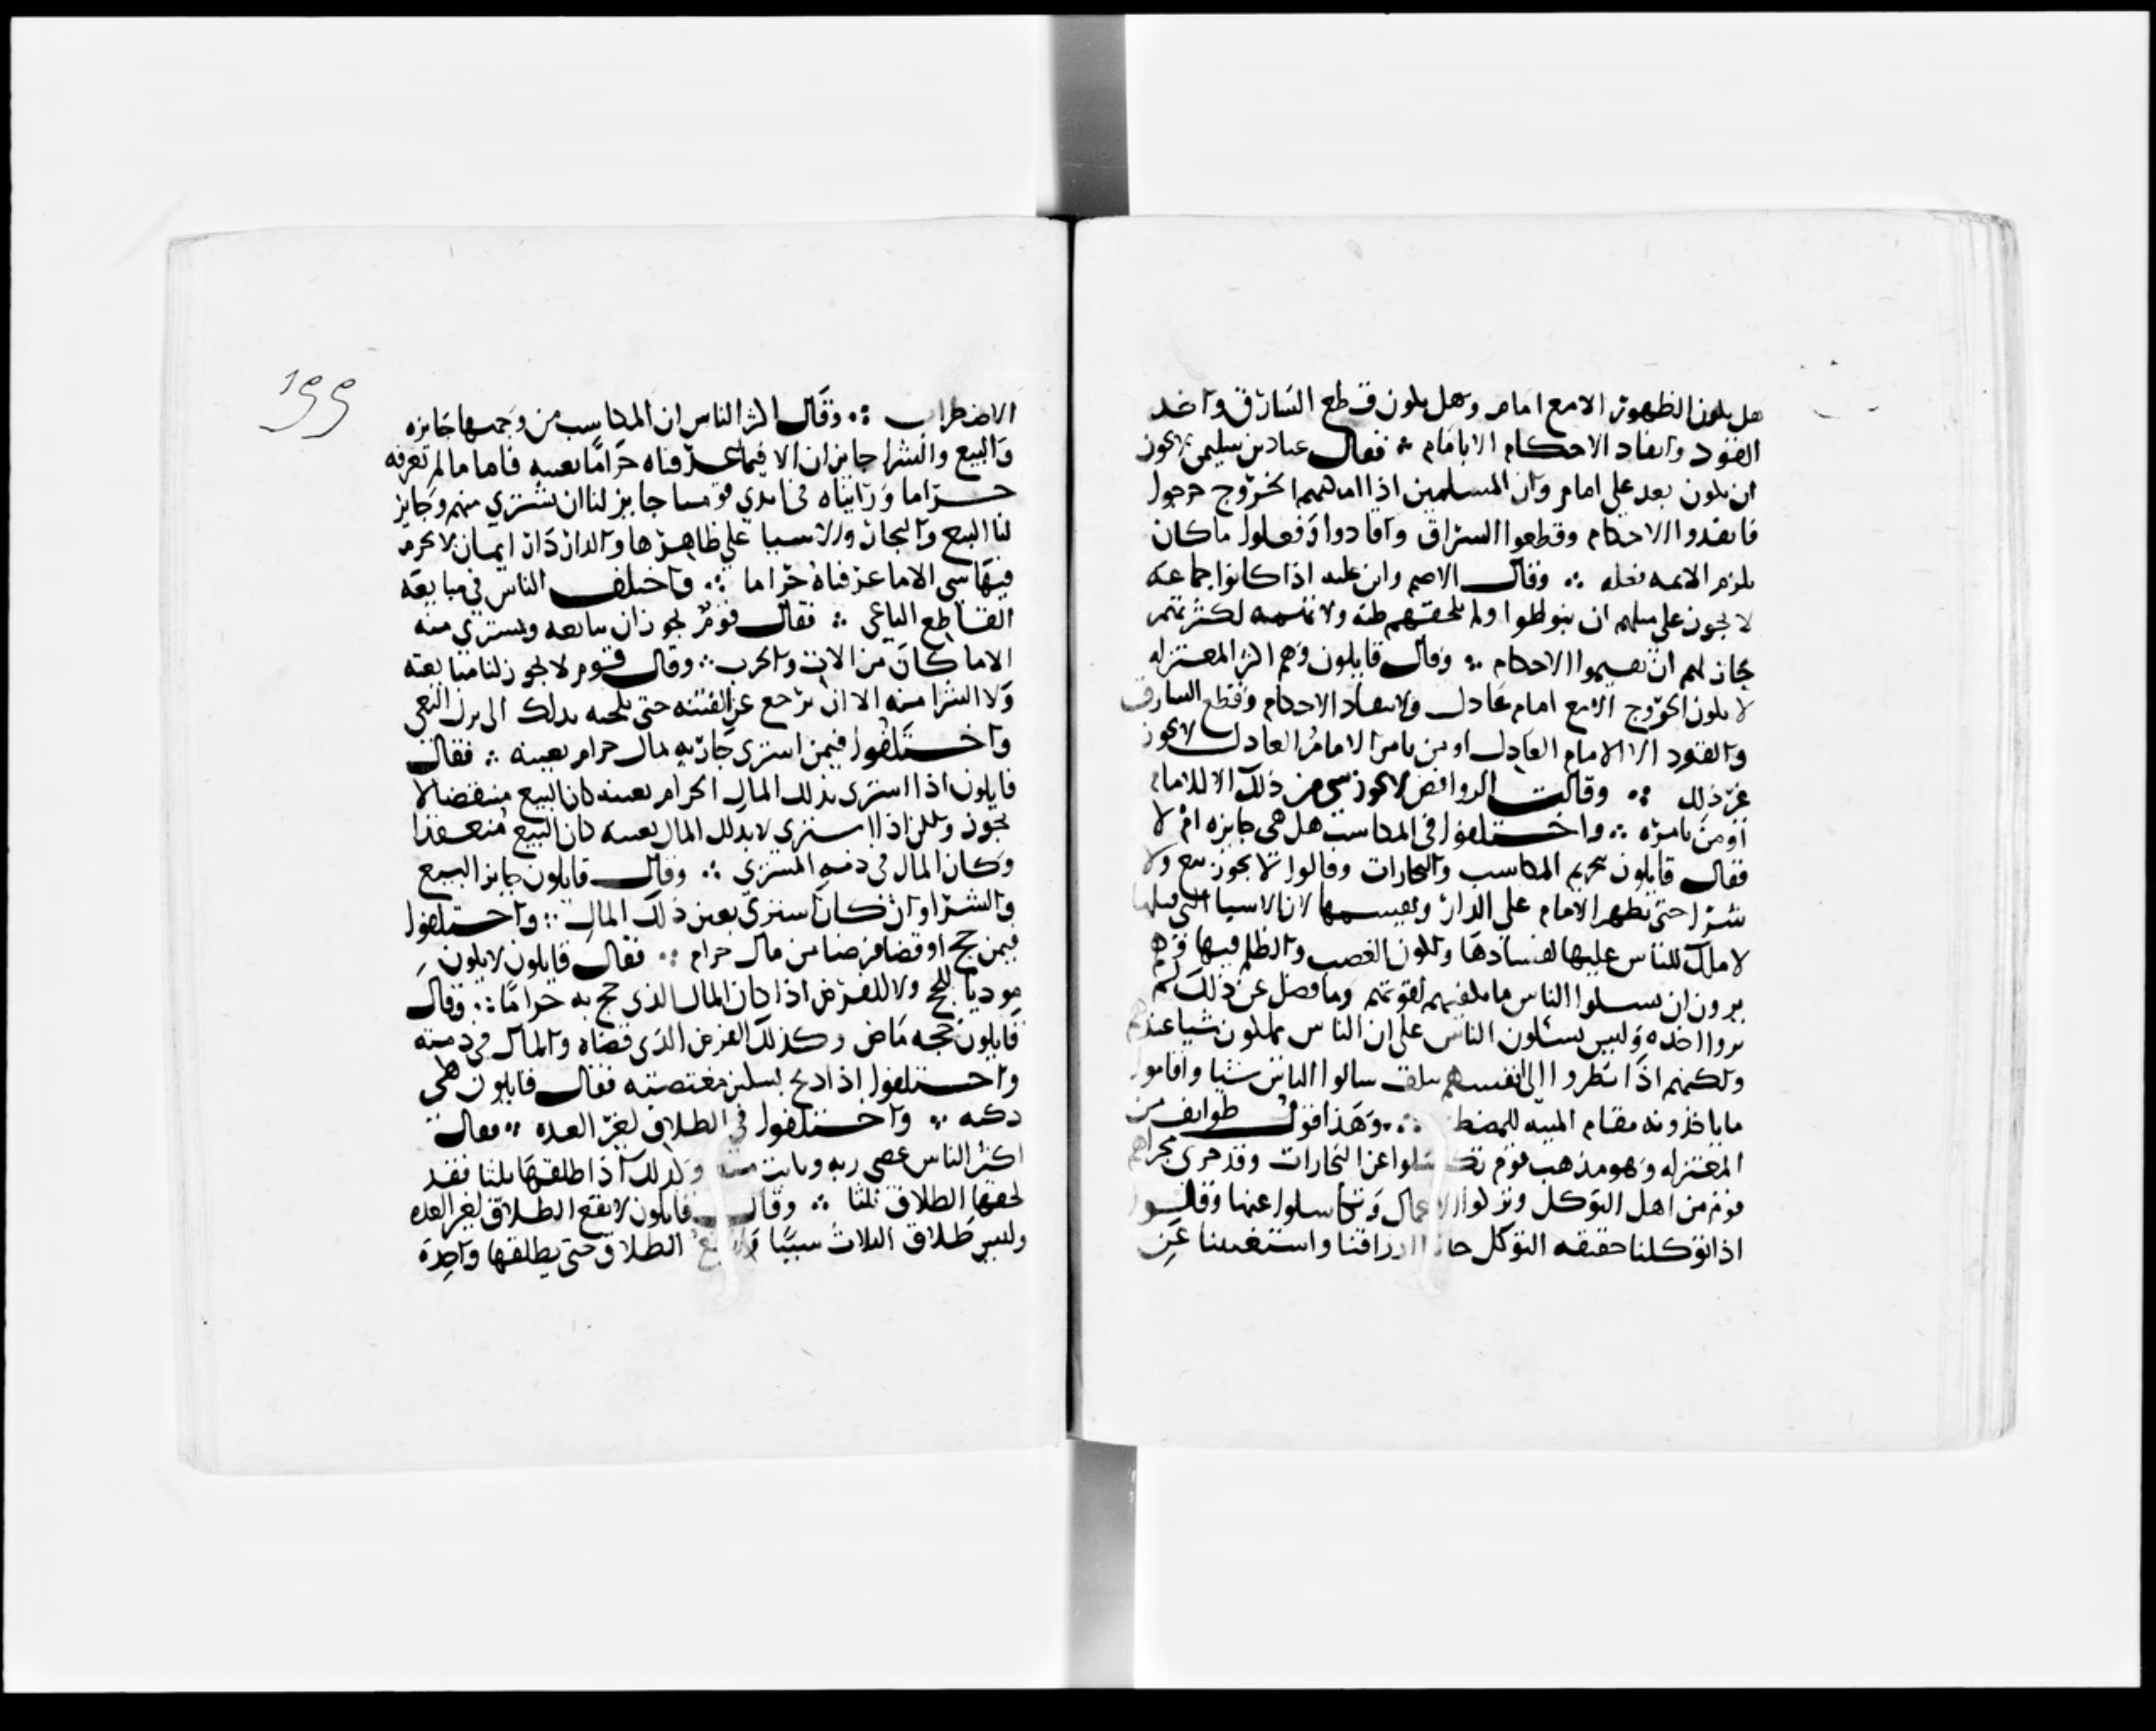 هل يكون الظهور الا مع امام وهل يكون قطع السارق واخد
القود وانفاد الاحكام الا بامام ∴ فقال عباد بن سليمن لا يجوز
ان يكون بعد علي امام وان المسلمين اذا امكنهم الخروج خرجوا
فانفدوا الاحكام وقطعوا السراق واقادوا وفعلوا ما كان
يلزم الايمه فعله ∴ وقال الاصم وابن عليه اذا كانوا جماعه
لا يجوز على مثلهم ان يتواطوا ولا تلحقهم ظنه ولا تهمه لكثرتهم
جاز لهم ان يقيموا الاحكام ∴ وقال قايلون وهم اكثر المعتزله
لا يكون الخروج الا مع امام عادل ولا انفاد الاحكام وقطع السارق
والقود الا الامام العادل او من يامره الامام العادل لا يجوز
غير ذلك ∴ وقالت الروافض لا يجوز شي من ذلك الا للامام
او من يامره ∴ واختلفوا في المكاسب هل هي جايزه ام لا
فقال قايلون بتحريم المكاسب والتجارات وقالوا لا يجوز بيع ولا
شرا حتى يظهر الامام على الدار ويقسمها لان الاشيا التي قبلها
لا ملك للناس عليها لفسادها ولكون الغصب والظلم فيها وهم
يرون ان يسلوا الناس ما يكفيهم لقوتهم وما فضل عن ذلك لم
يروا اخده وليس يسئلون الناس على ان الناس يملكون شيا عندهم
ولكنهم اذا نظروا الى انفسهم تتلف سالوا الناس شيا واقاموا
ما ياخذونه مقام الميته للمضطر ∴ وهذا قول طوايف من
المعتزله وهو مذهب قوم تكاسلوا عن التجارات وقد جرى مجراهم
قوم من اهل التوكل وتركوا الاعمال وتكاسلوا عنها وقالوا
اذا توكلنا حقيقه التوكل جاتنا ارزاقنا واستغنينا عن
١٩٩
الاضطراب ∴ وقال اكثر الناس ان المكاسب من وجهها جايزه
والبيع والشرا جايزان الا فيما عرفناه حراما بعينه فاما ما لم نعرفه
حراما ورايناه في ايدي قوم جايز لنا ان نشتري منهم وجايز
لنا البيع والتجاره والاشيا على ظاهرها والدار دار ايمان لا يحرم
فيها شي الا ما عرفناه حراما ∴ واختلف الناس في مبايعه
القاطع الباغي ∴ فقال قوم يجوز ان نبايعه ونشتري منه
الا ما كان من الات الحرب ∴ وقال قوم لا يجوز لنا مبايعته
ولا الشرا منه الا ان يرجع عن الفتنه حتى نلجيه بدلك الى ترك البغي
واختلفوا فيمن اشترى جاريه بمال حرام بعينه ∴ فقال
قايلون اذا اشترى بذلك المال الحرام بعينه كان البيع منتقضا لا
يجوز ولكن اذا اشترى لا بدلك المال بعينه كان البيع منعقدا
وكان المال في ذمه المشتري ∴ وقال قايلون جايز البيع
والشرا وان كان اشترى بعين ذلك المال ∴ واختلفوا
فيمن حج او قضا فرضا من مال حرام ∴ فقال قايلون لا يكون
موديا للحج ولا للفرض اذا كان المال الذي حج به حراما ∴ وقال
قايلون حجه ماض وكذلك الفرض الذي قضاه والمال في ذمته
واختلفوا اذا ذبح بسكين مغتصبه فقال قايلون هي
ذكيه ∴ واختلفوا في الطلاق لغير العده ∴ فقال
اكثر الناس عصى ربه وبانت منه وكذلك اذا طلقها ثلثا فقد
لحقها الطلاق ثلثا ∴ وقال قايلون لا يقع الطلاق لغير العده
وليس طلاق الثلاث شيئا ولا يقع الطلاق حتى يطلقها واحدة